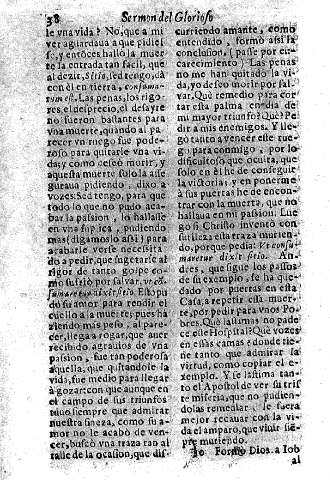 38 Sermon del Glorioso
le vna vida? No, que a mi
ver aguardaua a que pidiesse,
y entõces hallò la muerte
la entrada tan facil, que
al dezir, Sitio, sed tengo, dà
con èl en tierra,
Las penas, los rigores,
el desprecio, el desayre no
fueron bastantes para
vna muerte, quando al parecer
vn ruego fue poderoso
para quitarle vna vida;
y como deseò morir, y
aquesta muerte solo la asseguraua
pidiendo, dixo a
vozes: Sed tengo, para que
todo lo que no pudo acabar
la passion, lo hallasse
en vna suplica, pudiendo
mas (digamoslo assi) para
acabarle verse necessitado
a pedir, que sugetarse al
rigor de tanto golpe como
sufriò por salvar,
dixit sitio. Echò pu
su amor para rendir el
aliento a la muerte; pues haziendo
mas peso, al parecer,
llegar a rogar, que auer
recibido agrauios de vna
passion, fue tan poderosa
aquella, que quitandole la
vida, fue medio para llegar
à gozar: con que aunque en
el campo de sus triunfos
tuuo siempre que admirar
nuestra fineza, como su amor
no le acabò de vencer,
buscò vna traza tan al
talle de la ocasion, que dis-
curriendo amante, como
entendido, formò assi la
conclusion, (passe por encarecimiento)
Las penas
no me han quitado la vida,
yo deseo morir por salvar.
Què remedio para cortar
esta palma en dia de
mi mayor triunfo? Què? Pedir
a mis enemigos. Y llego
tanto a vencer esse ruego
para conmigo, por lo
dificultoso que oculta, que
solo en èl he de conseguir
la victoria; y en ponerme
à sus puertas he de encontrar
con la muerte, que no
hallaua en mi passion. Luego
si Christo inventò con
sutileza esta traza muriendo,
porque pedia:
dixit sitio. Andres,
que sigue los passos
de su exemplo, se ha quedado
por puertas en esta
Casa, a repetir essa muerte,
por pedir para vnos Pobres.
Què lastimas no padece
esse Hospital? Què vozes
en essas camas donde tiene
tanto que admirar la
virtud, como copiar el exemplo.
Y se lastima tanto
el Apostol de ver su triste
miseria, que no pudiendolas
remediar, le fuera
mejor recauar con la vida
el amparo, que viuir siempre
muriendo.
30 Formò Dios a Iob
al